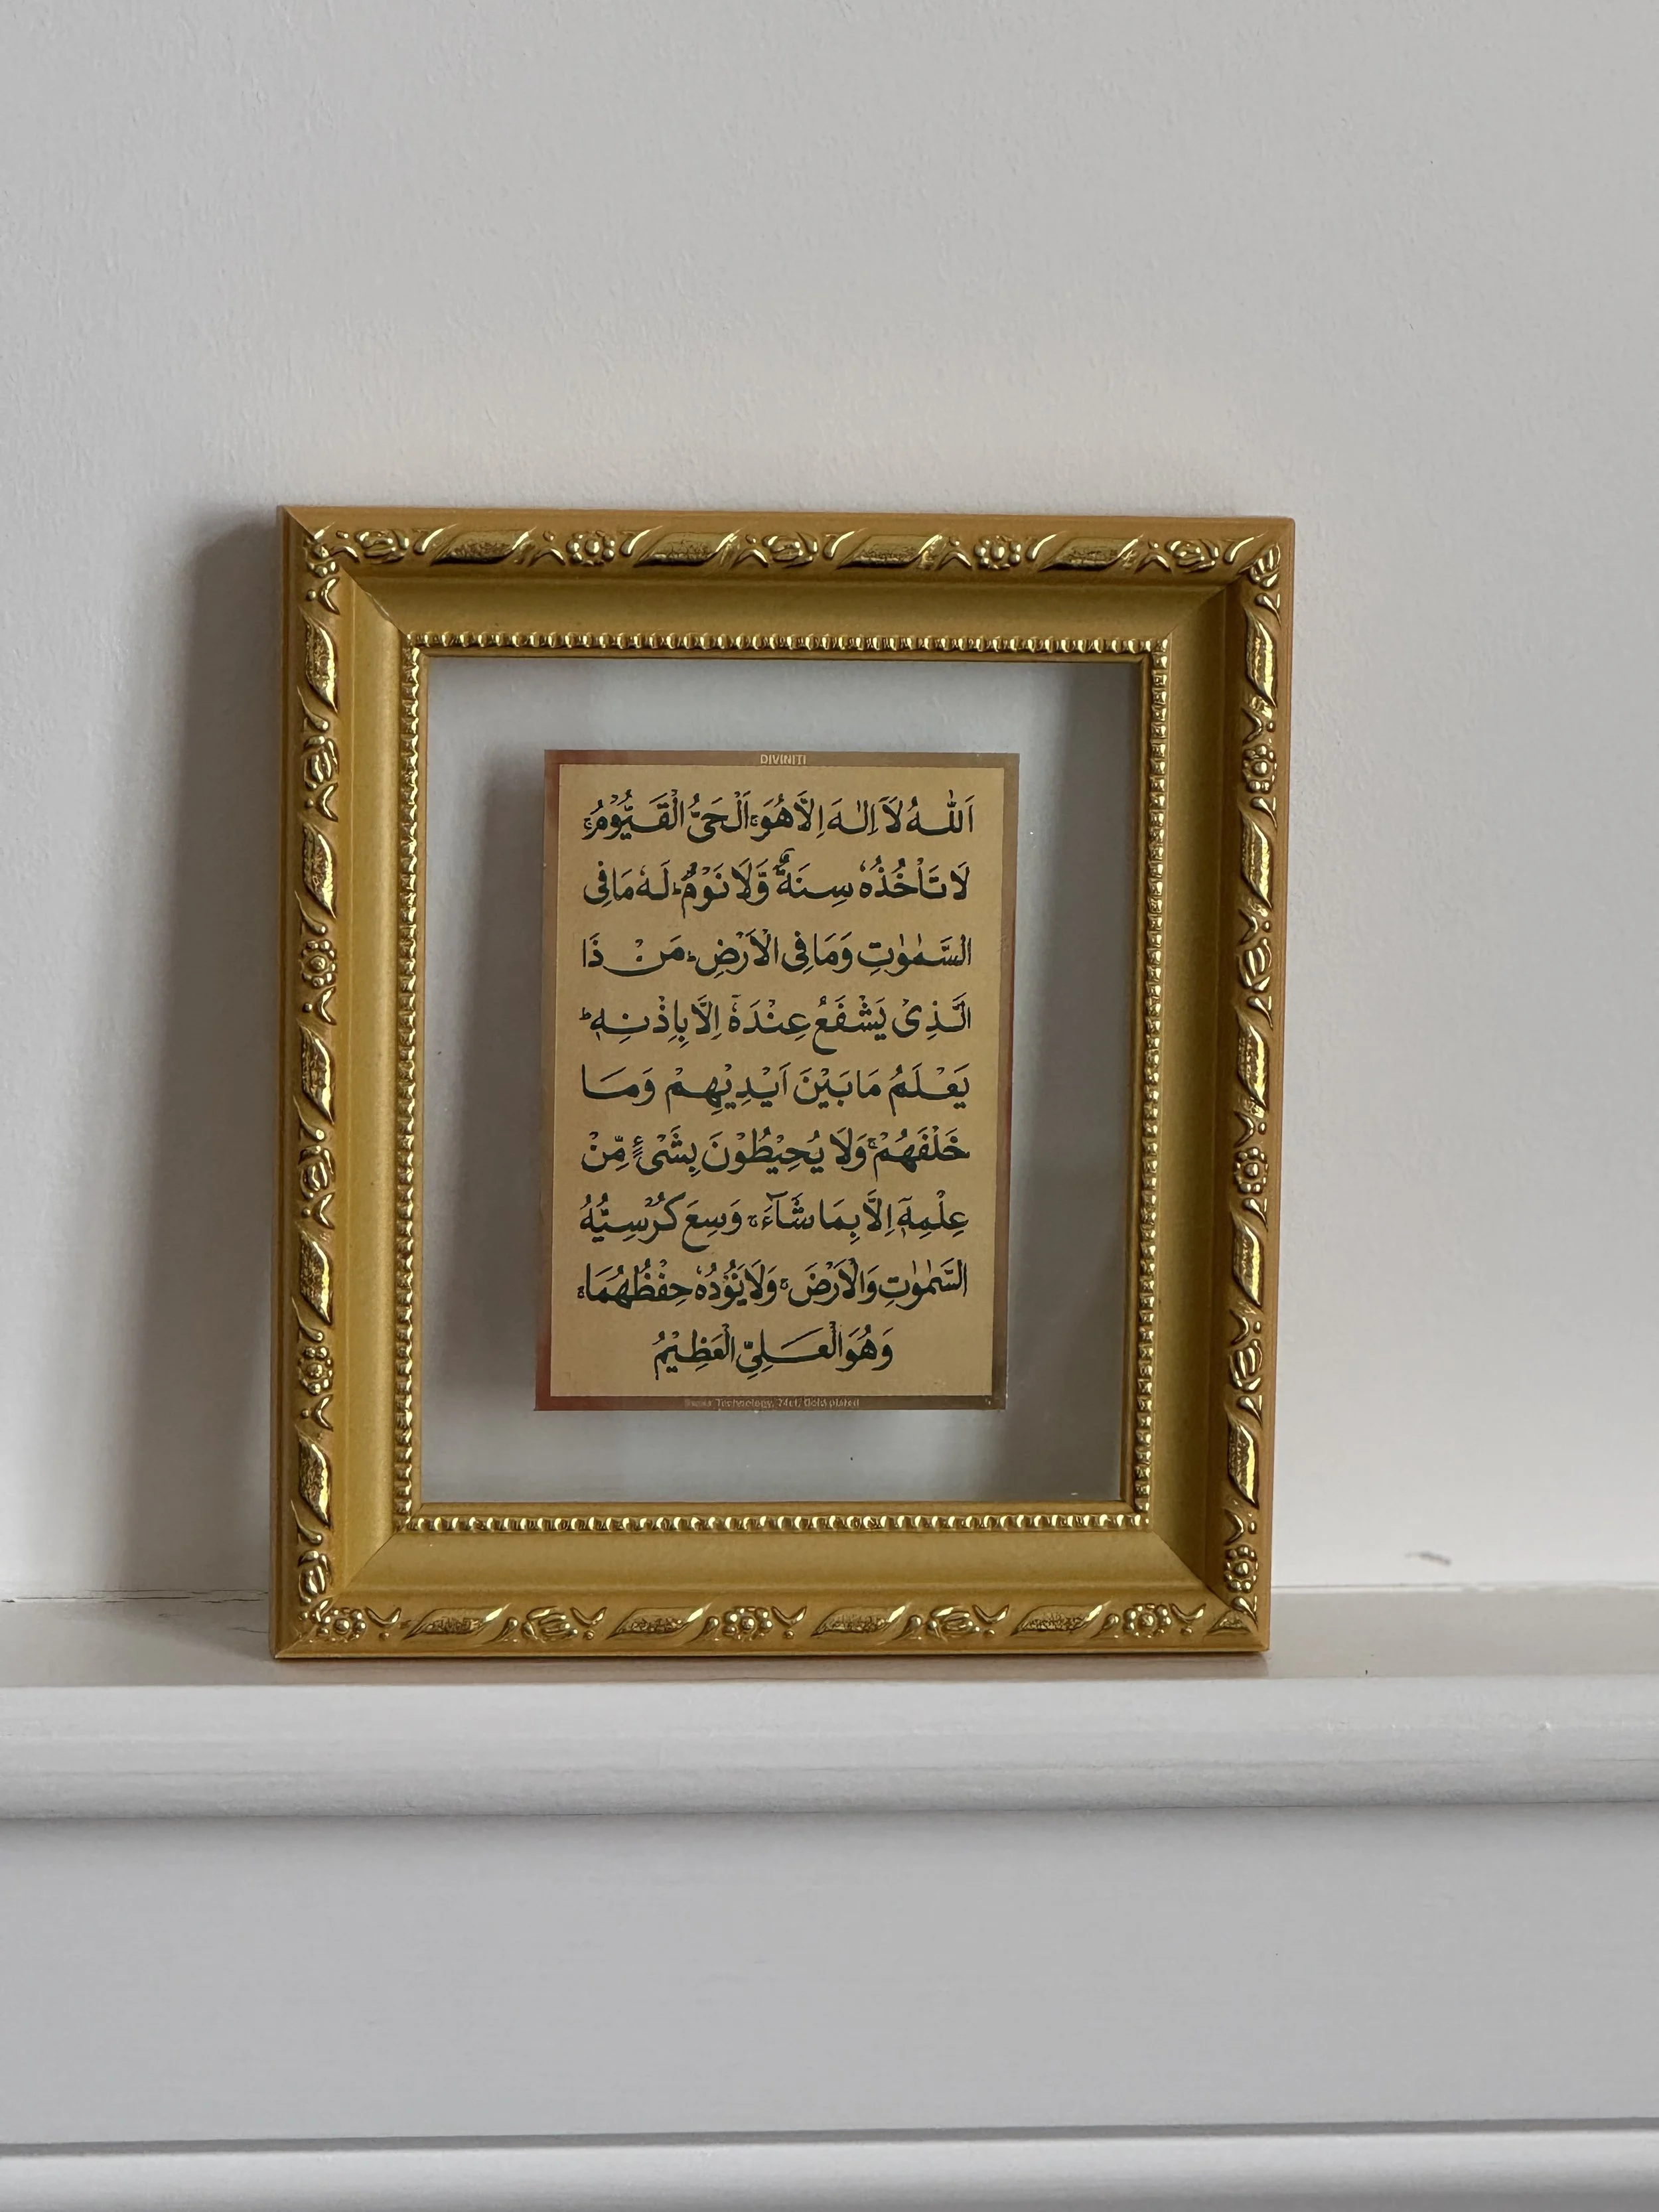 DIVINITI
اَللّٰهُ لَاۤ اِلٰهَ اِلَّا هُوَۚ اَلْحَیُّ الْقَیُّوْمُۚ
لَا تَاْخُذُهٗ سِنَةٌ وَّلَا نَوْمٌؕ لَهٗ مَا فِی
السَّمٰوٰتِ وَمَا فِی الْاَرْضِؕ مَنْ ذَا
الَّذِیْ یَشْفَعُ عِنْدَهٗۤ اِلَّا بِاِذْنِهٖؕ
یَعْلَمُ مَا بَیْنَ اَیْدِیْهِمْ وَمَا
خَلْفَهُمْۚ وَلَا یُحِیْطُوْنَ بِشَیْءٍ مِّنْ
عِلْمِهٖۤ اِلَّا بِمَا شَآءَۚ وَسِعَ كُرْسِیُّهُ
السَّمٰوٰتِ وَالْاَرْضَۚ وَلَا یَئُوْدُهٗ حِفْظُهُمَاۚ
وَهُوَ الْعَلِیُّ الْعَظِیْمُ
Technology, 24ct. Gold plated